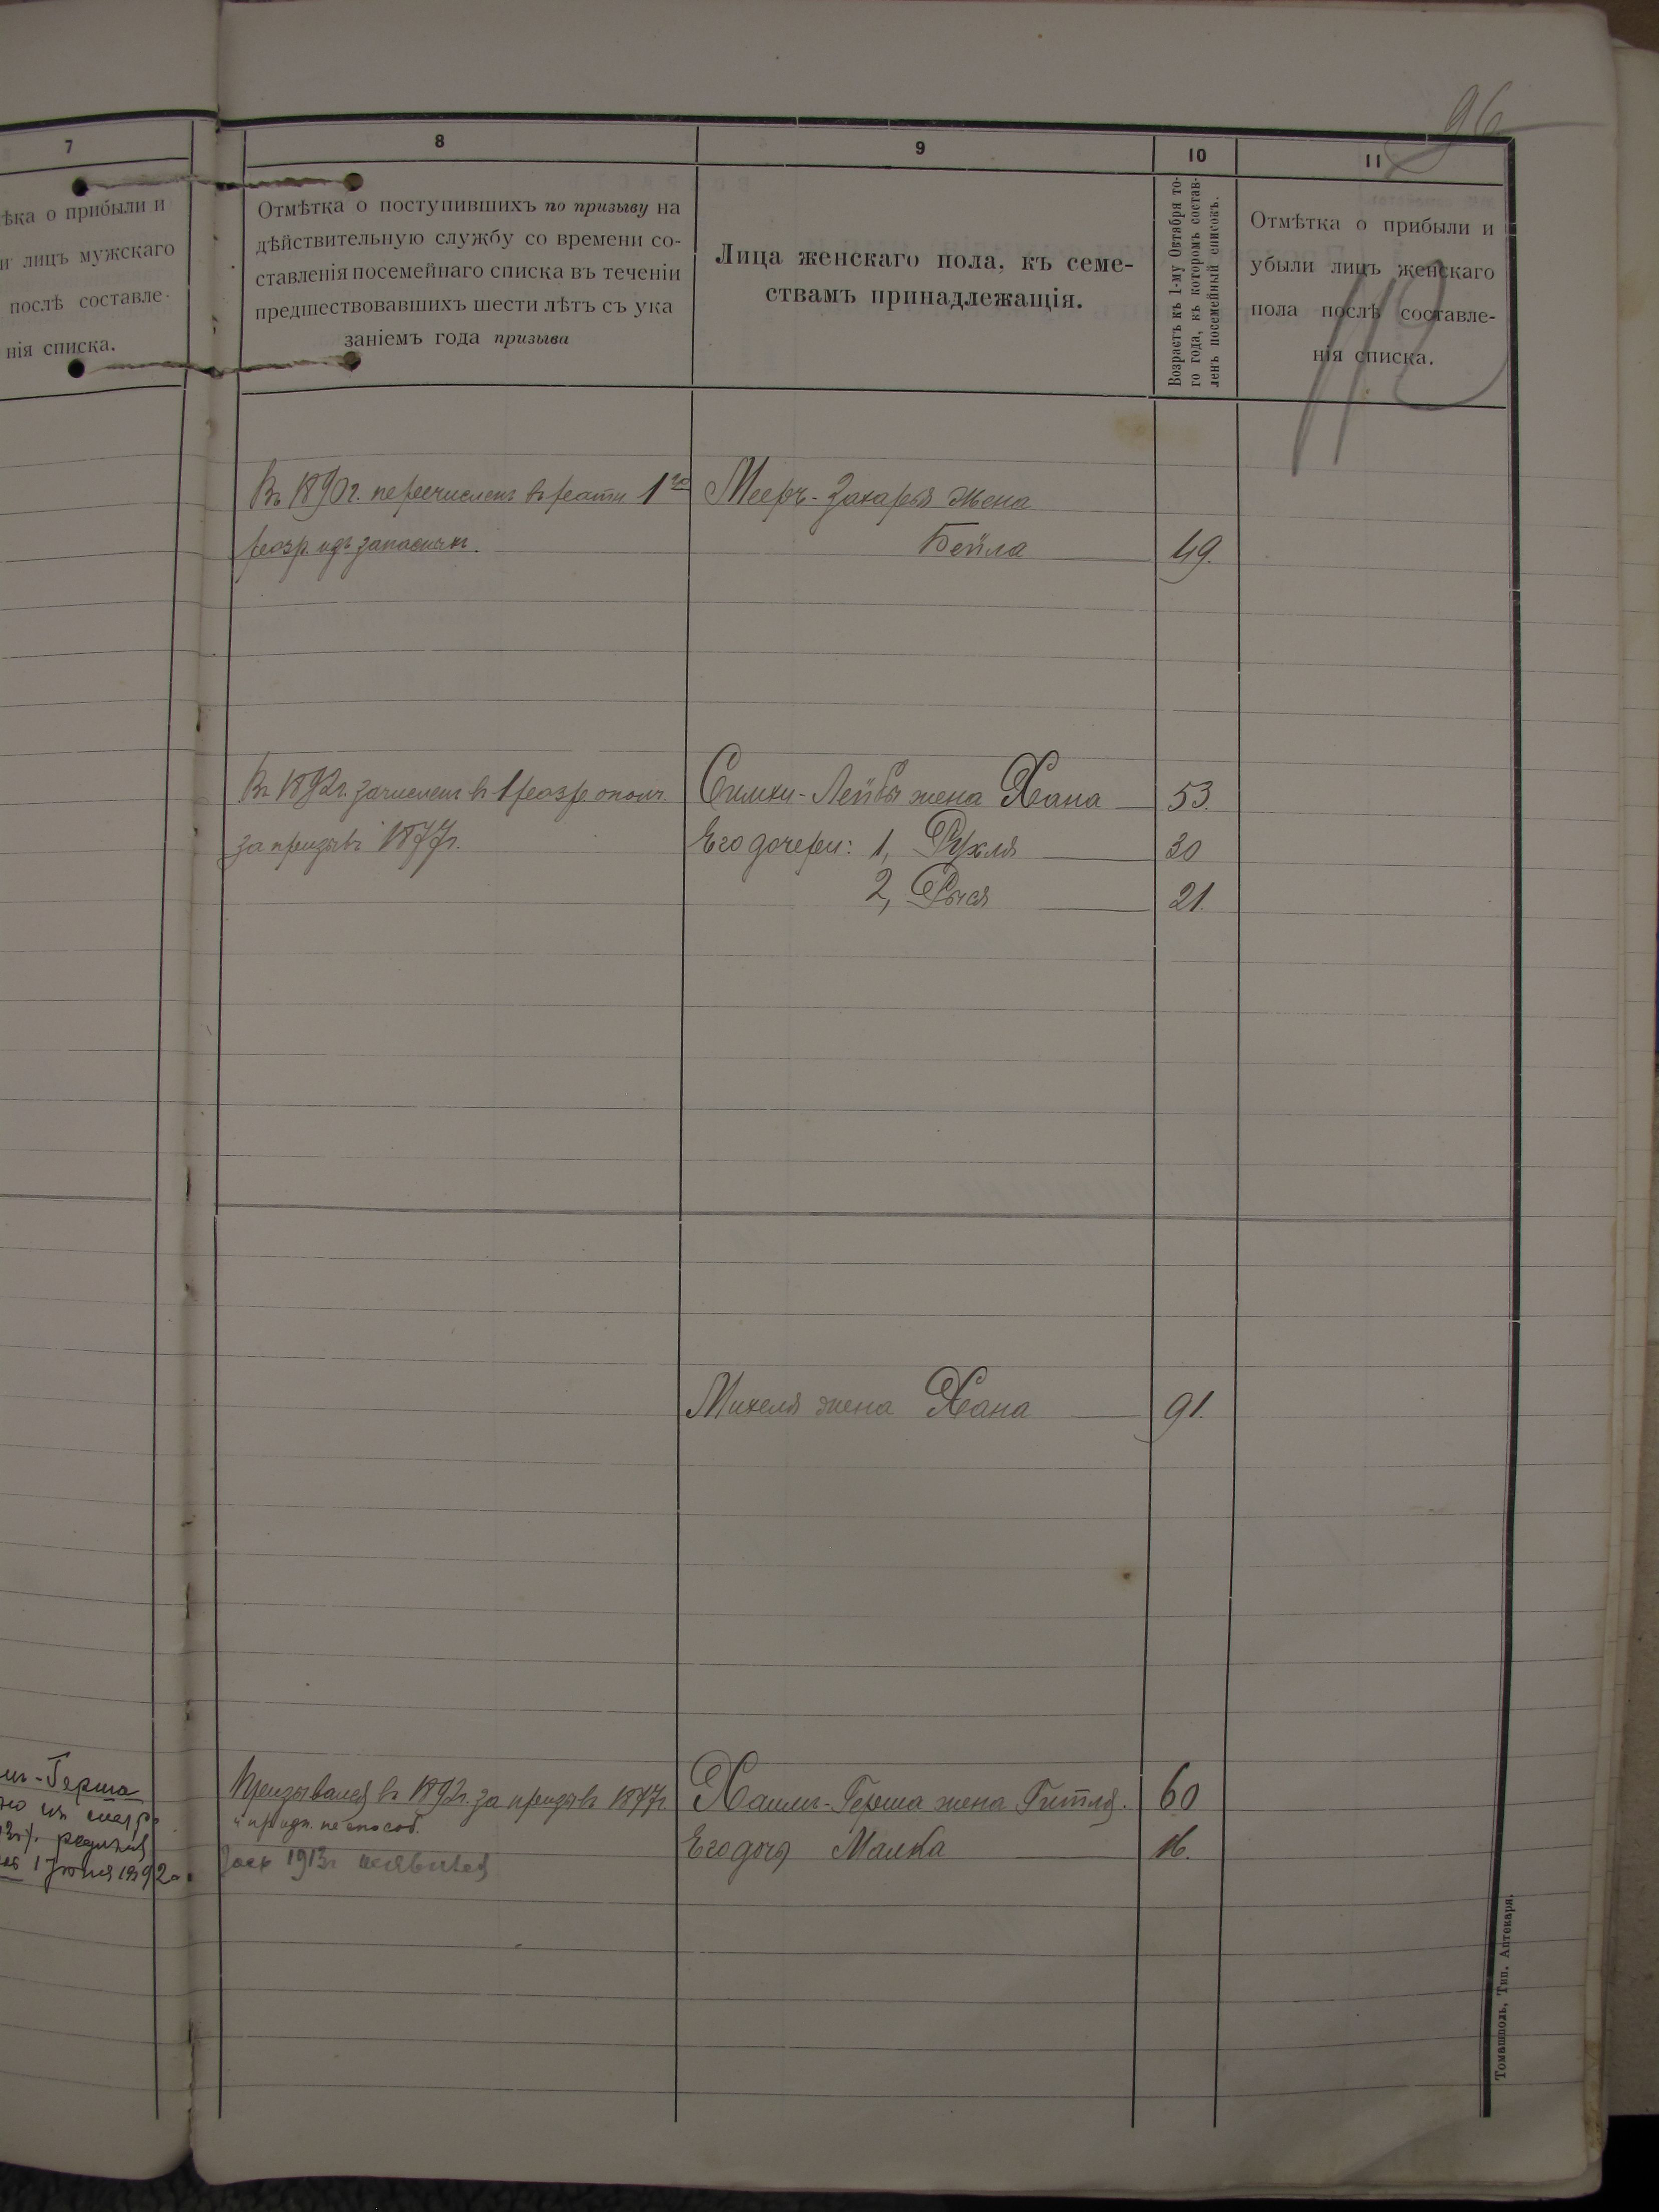 96
7
8
9
10
11
ѣка о прибыли и
и лицъ мужскаго
послѣ составле-
нія списка.
Отмѣтка о поступившихъ по призыву на
дѣйствительную службу со времени со-
ставленія посемейнаго списка въ теченіи
предшествовавшихъ шести лѣтъ съ ука
заніемъ года призыва
Лица женскаго пола, къ семе-
ствамъ принадлежащія.
Возрастъ къ 1-му Октября то-
го года, къ которомъ состав-
ленъ посемейный списокъ.
Отмѣтка о прибыли и
убыли лицъ женскаго
пола послѣ составле-
нія списка.
Въ 1890 г. перечисленъ въ ратн. 1го
разр. изъ запасныхъ.
Мееръ-Захарья жена
Бейла 49.
Въ 1892г. зачисленъ въ 1 разр. ополч.
за призывъ 1877г.
Симхи-Лейбы жена Хана 53.
Его дочери: 1, Рухля 30
2, Рыся 21.
Михеля жена Хана 91.
-Герша
1 Іюня 1892г.
Призывался въ 1892г. за призывъ 1877г.
и призн. неспособ.
1913г неявился
Хаимъ-Герша жена Гитля. 60
Его дочь Малка 16.
Томашполь, Тип. Аптекаря.